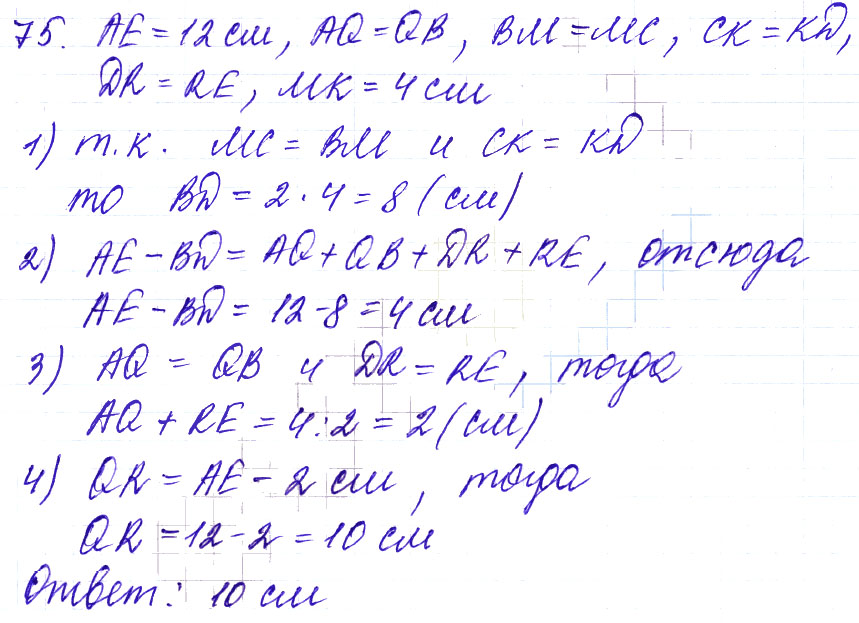 75. AE = 12 см, AQ = QB, BM = MC, CK = KD,
DR = RE, MK = 4 см
1) т.к. MC = BM и CK = KD
то BD = 2 · 4 = 8 (см)
2) AE - BD = AQ + QB + DR + RE, отсюда
AE - BD = 12 - 8 = 4 см
3) AQ = QB и DR = RE, тогда
AQ + RE = 4 : 2 = 2 (см)
4) QR = AE - 2 см, тогда
QR = 12 - 2 = 10 см
Ответ: 10 см